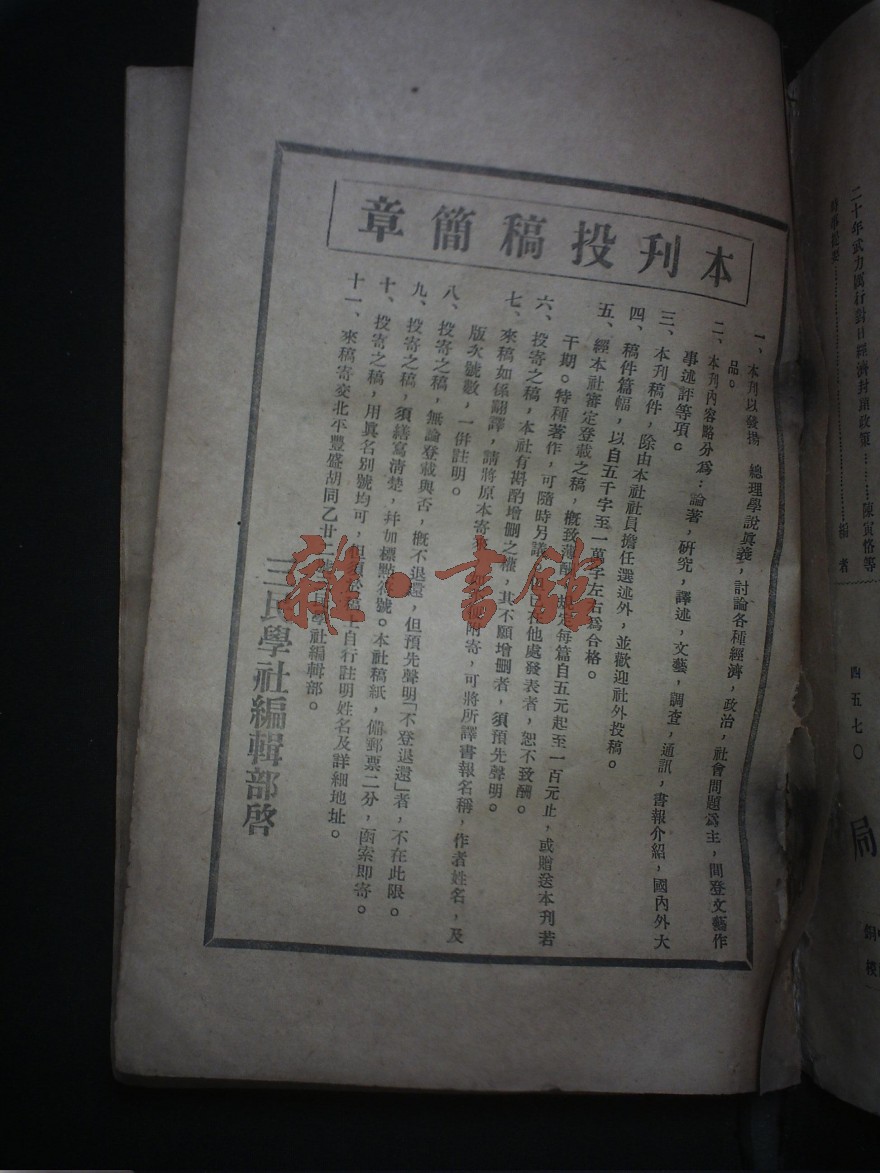 本刋投稿簡章
一、本刋以發揚　總理學說眞義，討論各種經濟，政治，社會問題爲主，間登文藝作
品。
二、本刋內容略分爲：論著，硏究，譯述，文藝，調查，通訊，書報介紹，國內外大
事述評等項。
三、本刋稿件，除由本社社員擔任選述外，並歡迎社外投稿。
四、稿件篇幅，以自五千字至一萬字左右爲合格。
五、經本社審定登載之稿，槪致薄酬，規定每篇自五元起至一百元止，或贈送本刋若
干期。特種著作，可隨時另議，但已在他處發表者，恕不致酬。
六、投寄之稿，本社有斟酌增删之權，其不願增删者，須預先聲明。
七、來稿如係翻譯，請將原本寄附寄，可將所譯書報名稱，作者姓名，及
版次號數，一併註明。
八、投寄之稿，無論登載與否，槪不退還，但預先聲明「不登退還」者，不在此限。
九、投寄之稿，須繕寫清楚，幷加標點符號。本社稿紙，備郵票二分，函索卽寄。
十、投寄之稿，用眞名別號均可，但須於稿上自行註明姓名及詳細地址。
十一、來稿寄交北平豐盛胡同乙廿二號三民學社編輯部。
三民學社編輯部啓
二十年武力厲行對日經濟封鎖政策………陳寅恪等
時事提要………編者
四五七〇
局
銅模
雜·書館